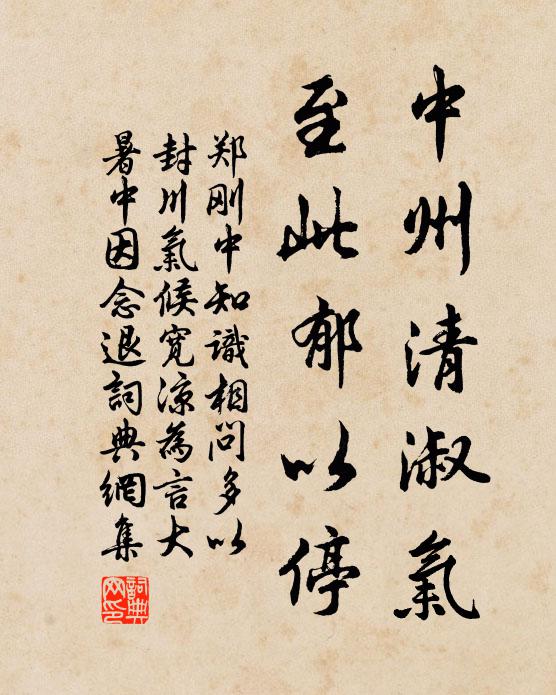 中州清淑氣
至此郁以停
郑刚中知識相问多以
封川氣候寬凉為言大
暑中因念退詞典網集
詞典网印